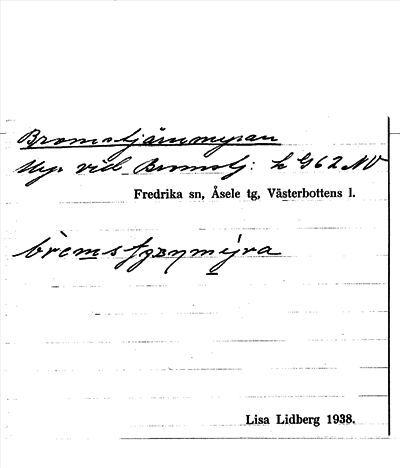 Bromstjärnmyran
Myr vid Bromstj: h G62 NV
Fredrika sn, Åsele tg, Västerbottens l.
Lisa Lidberg 1938.